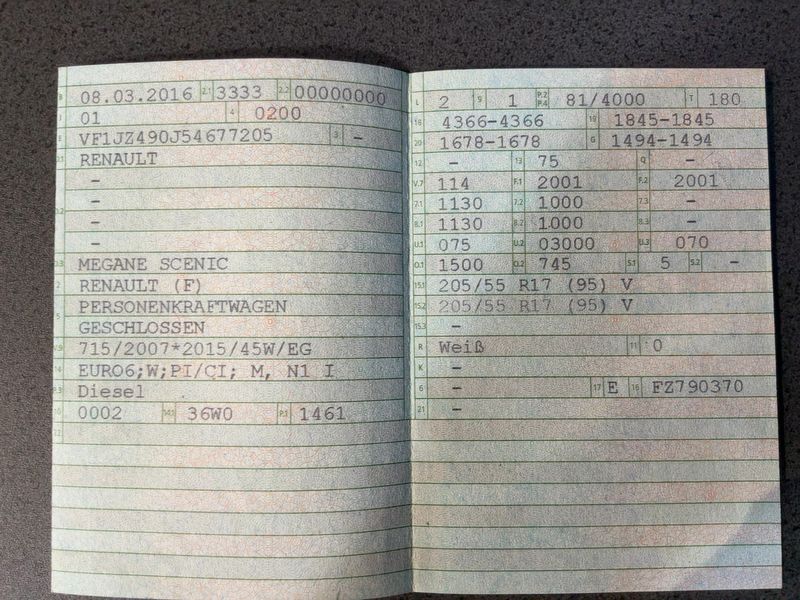 B 08.03.2016 2.1 3333 2.2 00000000
J 01 4 0200
E VF1JZ490J54677205 3 -
D.1 RENAULT
-
D.2 -
-
-
D.3 MEGANE SCENIC
2 RENAULT (F)
5 PERSONENKRAFTWAGEN
GESCHLOSSEN
V.9 715/2007*2015/45W/EG
14 EURO6;W;PI/CI; M, N1 I
P.3 Diesel
10 0002 14.1 36W0 P.1 1461
22
L 2 9 1 P.2 P.4 81/4000 T 180
18 4366-4366 19 1845-1845
20 1678-1678 G 1494-1494
12 - 13 75 Q -
V.7 114 F.1 2001 F.2 2001
7.1 1130 7.2 1000 7.3 -
8.1 1130 8.2 1000 8.3 -
U.1 075 U.2 03000 U.3 070
O.1 1500 O.2 745 S.1 5 S.2 -
15.1 205/55 R17 (95) V
15.2 205/55 R17 (95) V
15.3 -
R Weiß 11 0
K -
6 - 17 E 16 FZ790370
21 -